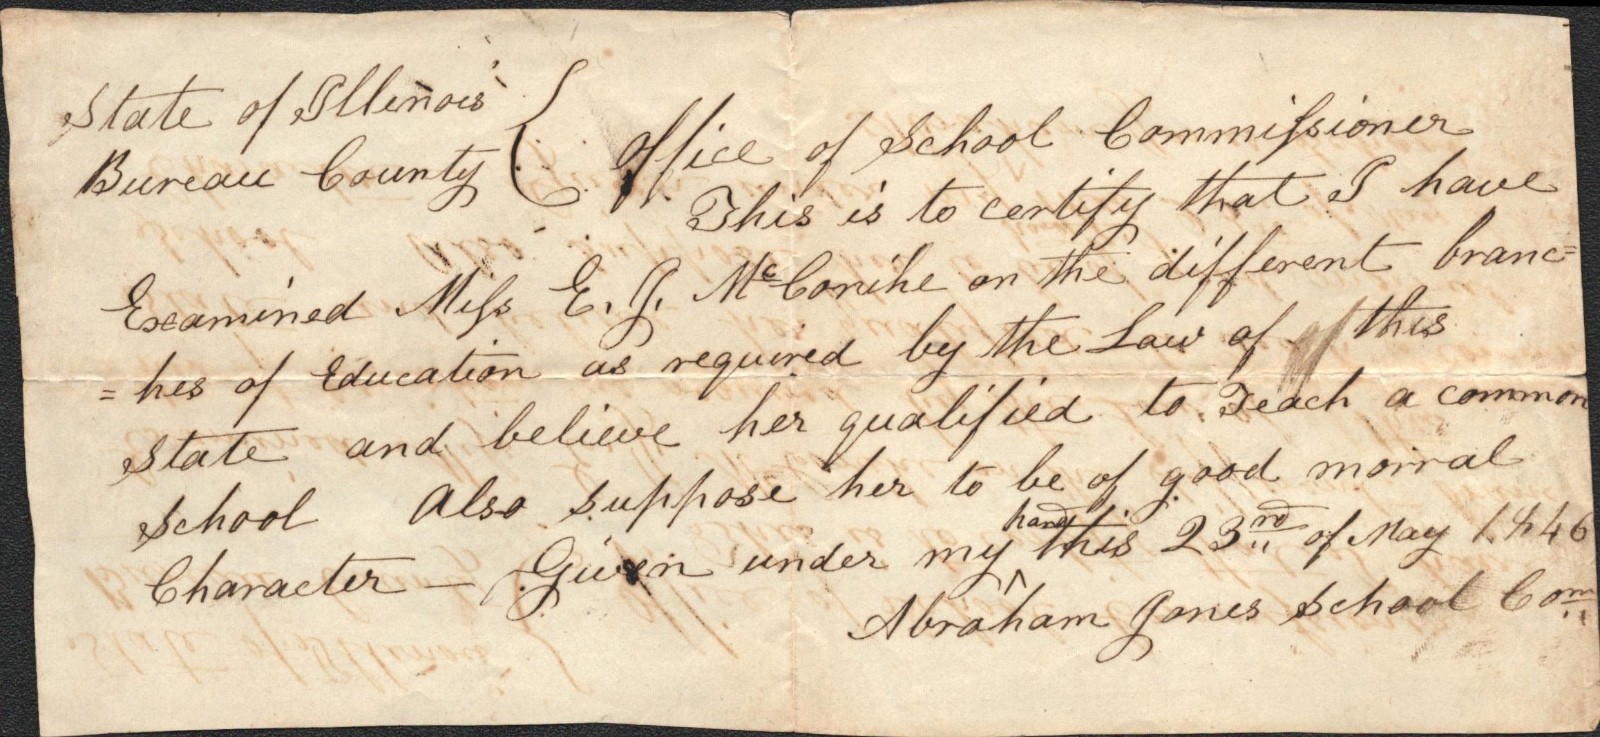 State of Illinois
Bureau County
Office of School Commissioner
This is to certify that I have
Examined Miss E. J. McConihe on the different branc=
=hes of Education as required by the Law of this
State and believe her qualified to Teach a common
School Also suppose her to be of good morral
Character — Given under my hand this 23rd of May 1846
Abraham Jones School Com